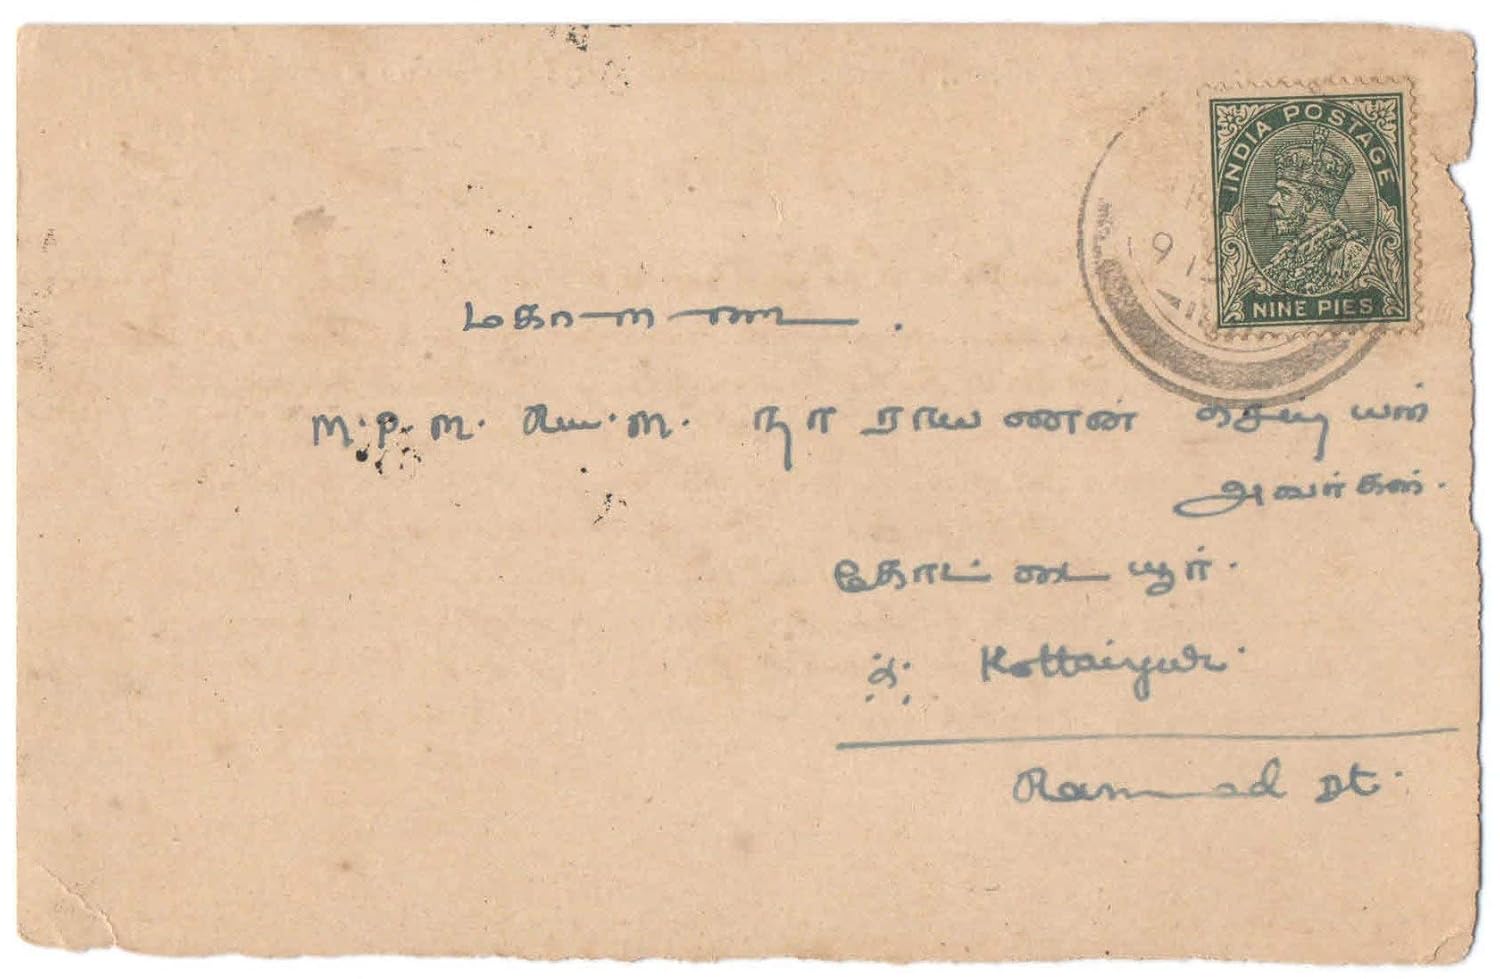 INDIA POSTAGE
NINE PIES
M. P. M. நாராயணன் செட்டியார்
அவர்கள்.
கோட்டையூர்.
Kottaiyur.
Ramnad Dt.